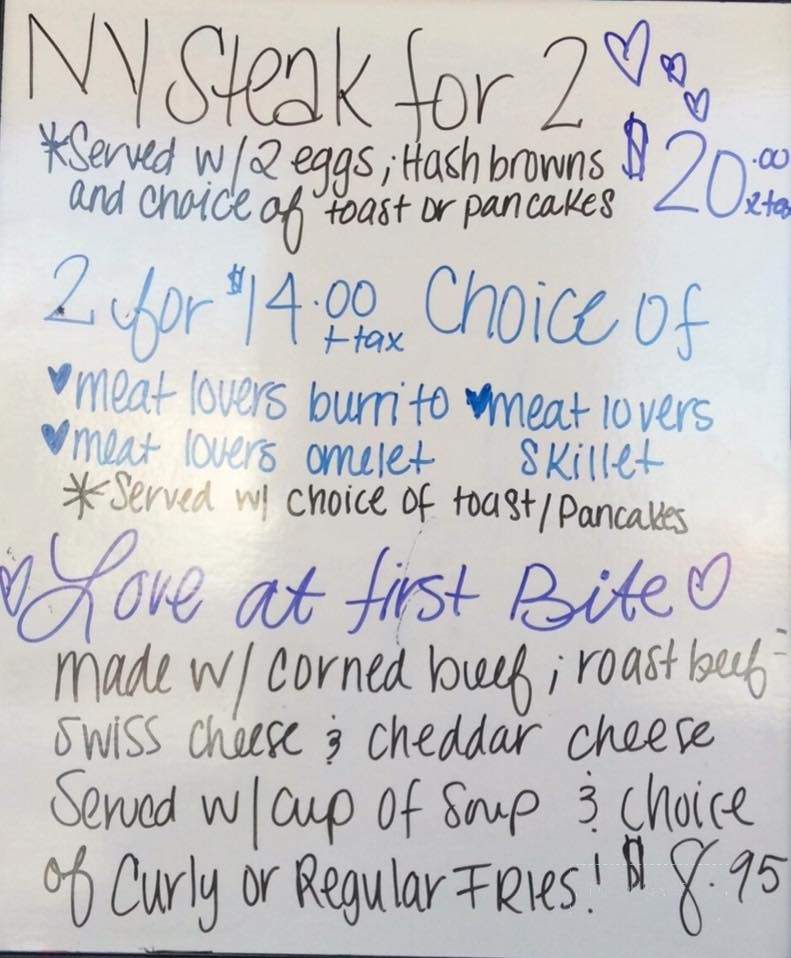 NY Steak for 2
*Served w/2 eggs, Hash browns $20.00
and choice of toast or pancakes
2 for $14.00 Choice of
+tax
meat lovers burrito meat lovers
meat lovers omelet Skillet
*Served w/ choice of toast/Pancakes
Love at first Bite
made w/ corned beef, roast beef
Swiss cheese & cheddar cheese
Served w/cup of Soup & choice
of Curly or Regular FRIES! $8.95